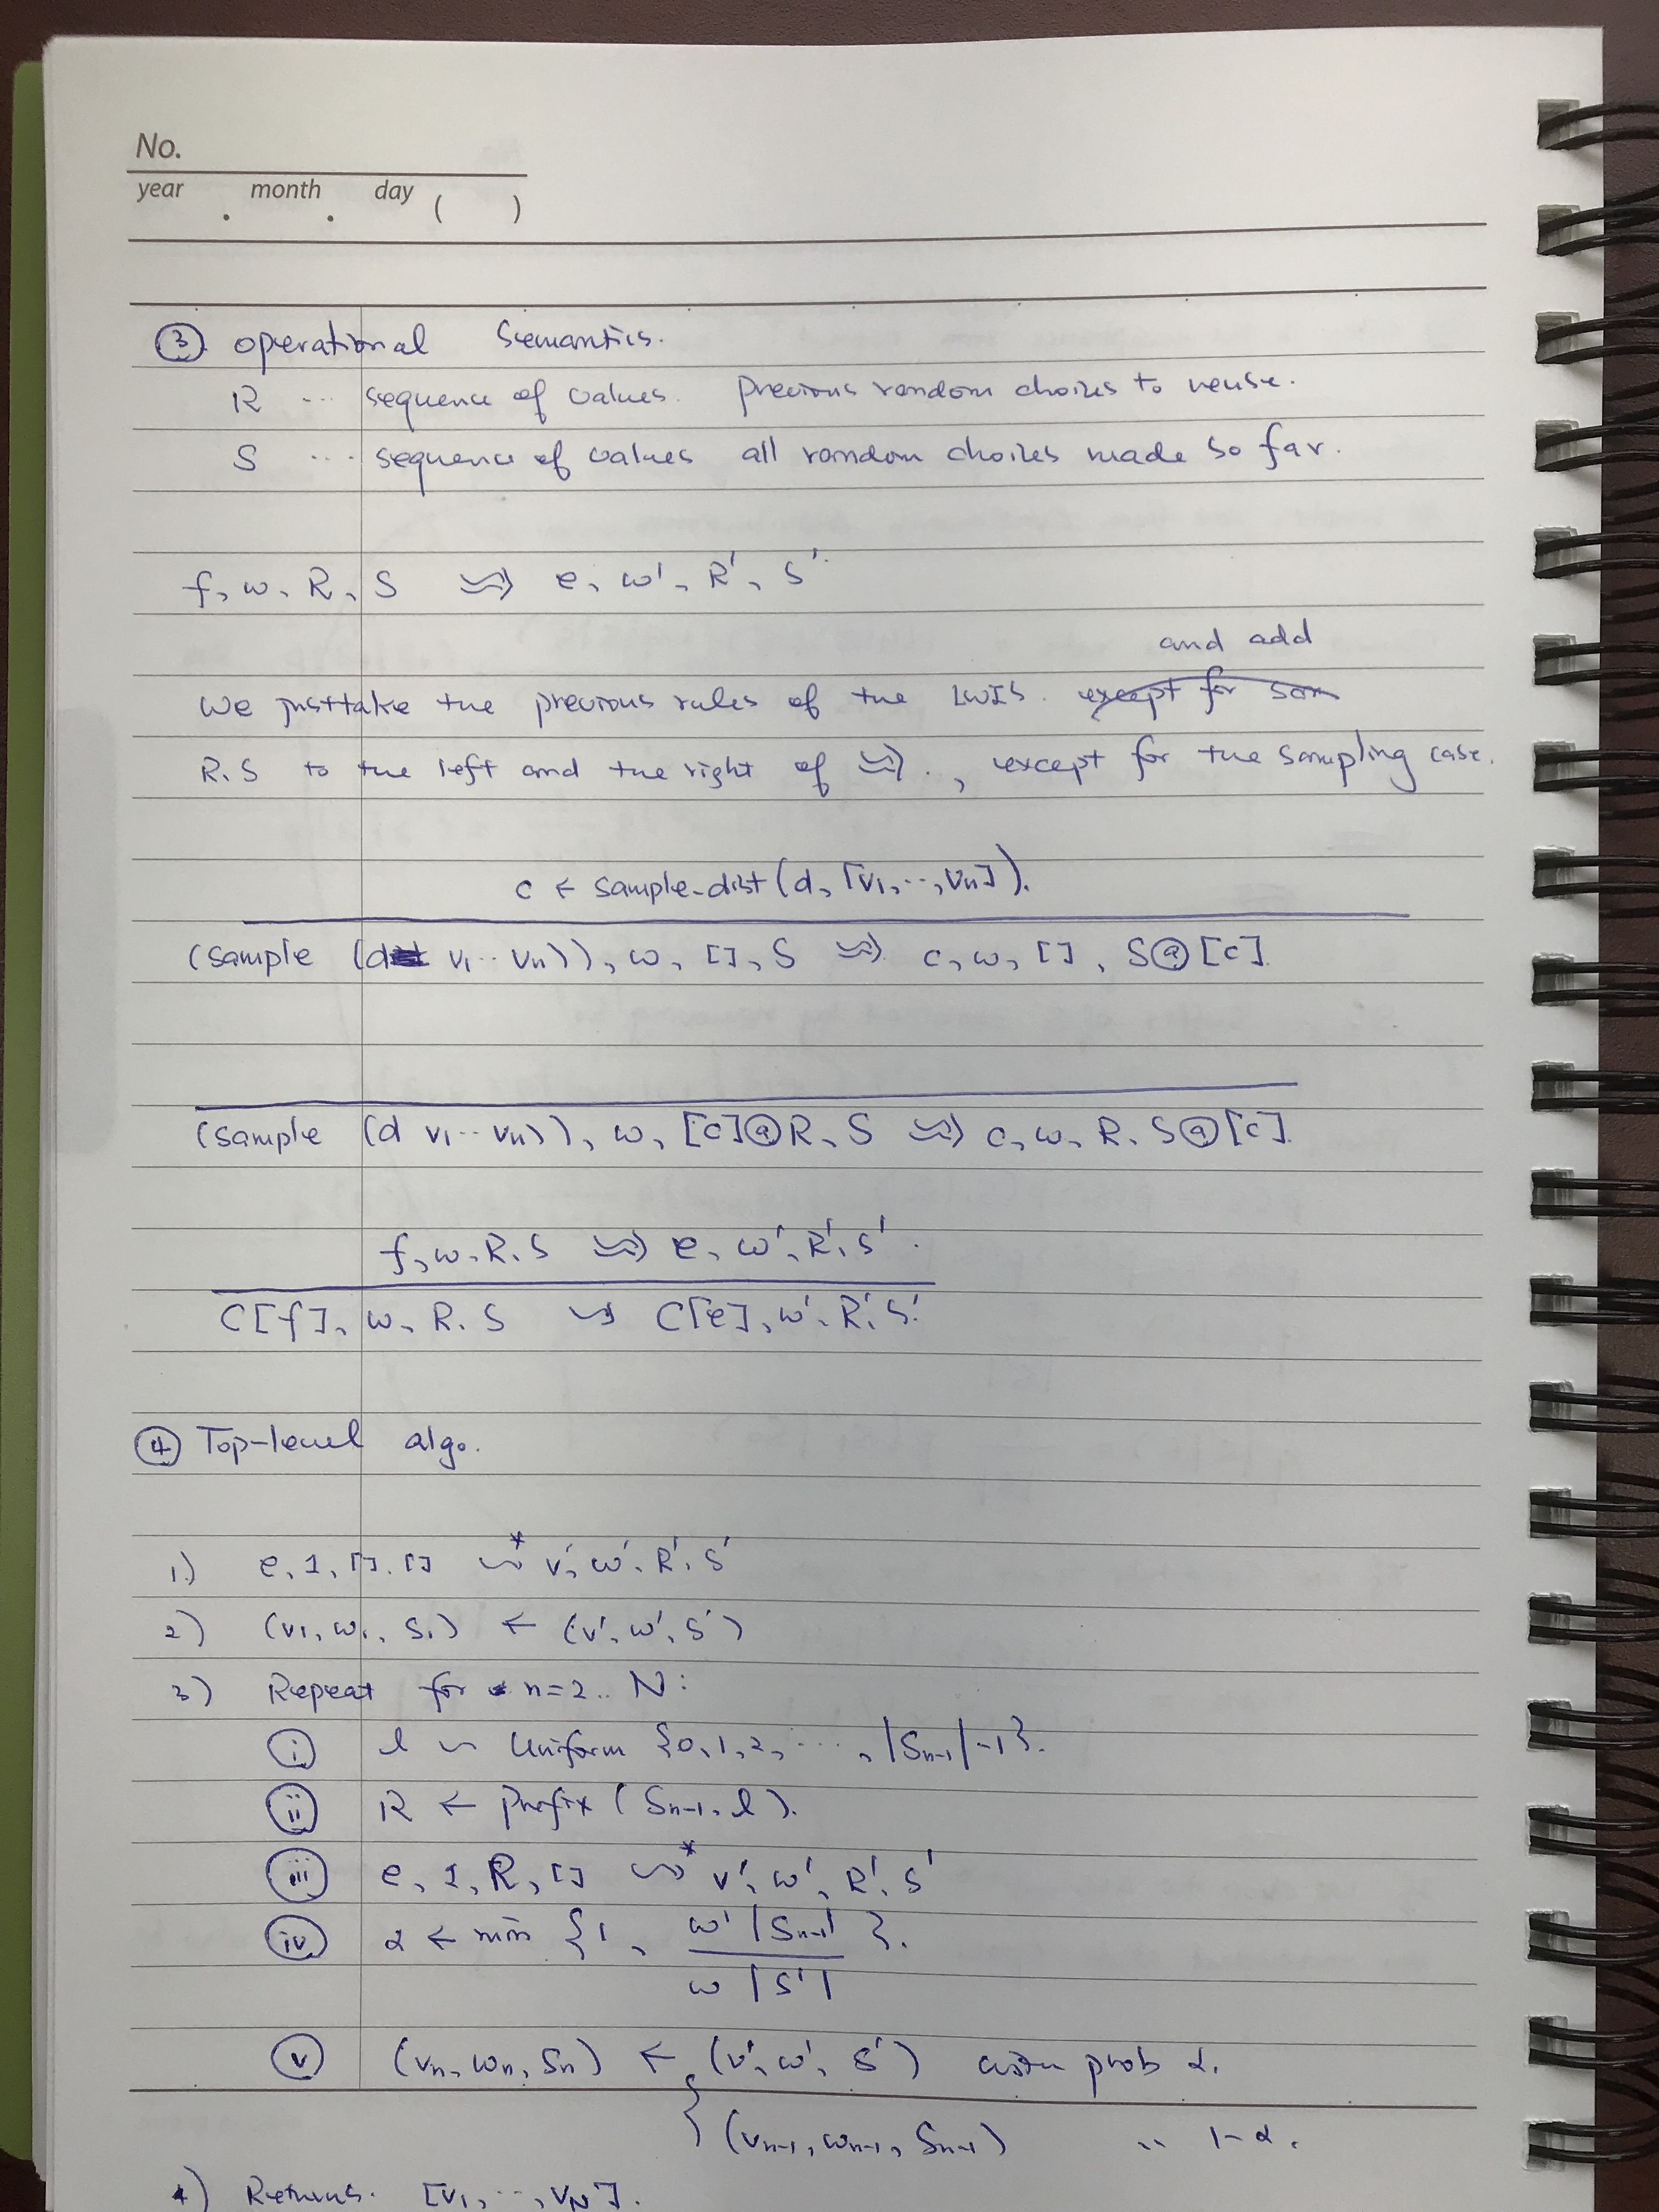 No.
year . month . day ( )
③. operational Semantics.
R ... sequence of values. previous random choices to reuse.
S ... sequence of values all random choices made so far.
f, w, R, S ⇝ e, w', R', S'.
and add
We just take the previous rules of the LWIS. except for som
R, S to the left and the right of ⇝., except for the sampling case.
c ← sample-dist (d, [v1, ..., vn]).
(sample (d v1 ... vn)), w, [], S ⇝ c, w, [], S@[c].
(sample (d v1 ... vn)), w, [c]@R, S ⇝ c, w, R, S@[c].
f, w, R, S ⇝ e, w', R', S'.
C[f], w, R, S ⇝ C[e], w', R', S'.
④ Top-level algo.
1.) e, 1, [], [] ⇝* v', w', R', S'
2) (v1, w1, S1) ← (v', w', S')
3) Repeat for n=2.. N:
ⓘ l ~ Uniform {0, 1, 2, ..., |Sn-1|-1}.
ⓘⓘ R ← prefix (Sn-1, l).
ⓘⓘⓘ e, 1, R, [] ⇝* v', w', R', S'
ⓘⓥ α ← min {1, w' |Sn-1| / w |S'| }.
ⓥ (vn, wn, Sn) ← { (v', w', S') with prob α.
(vn-1, wn-1, Sn-1) " 1-α.
4) Returns. [v1, ..., vN].